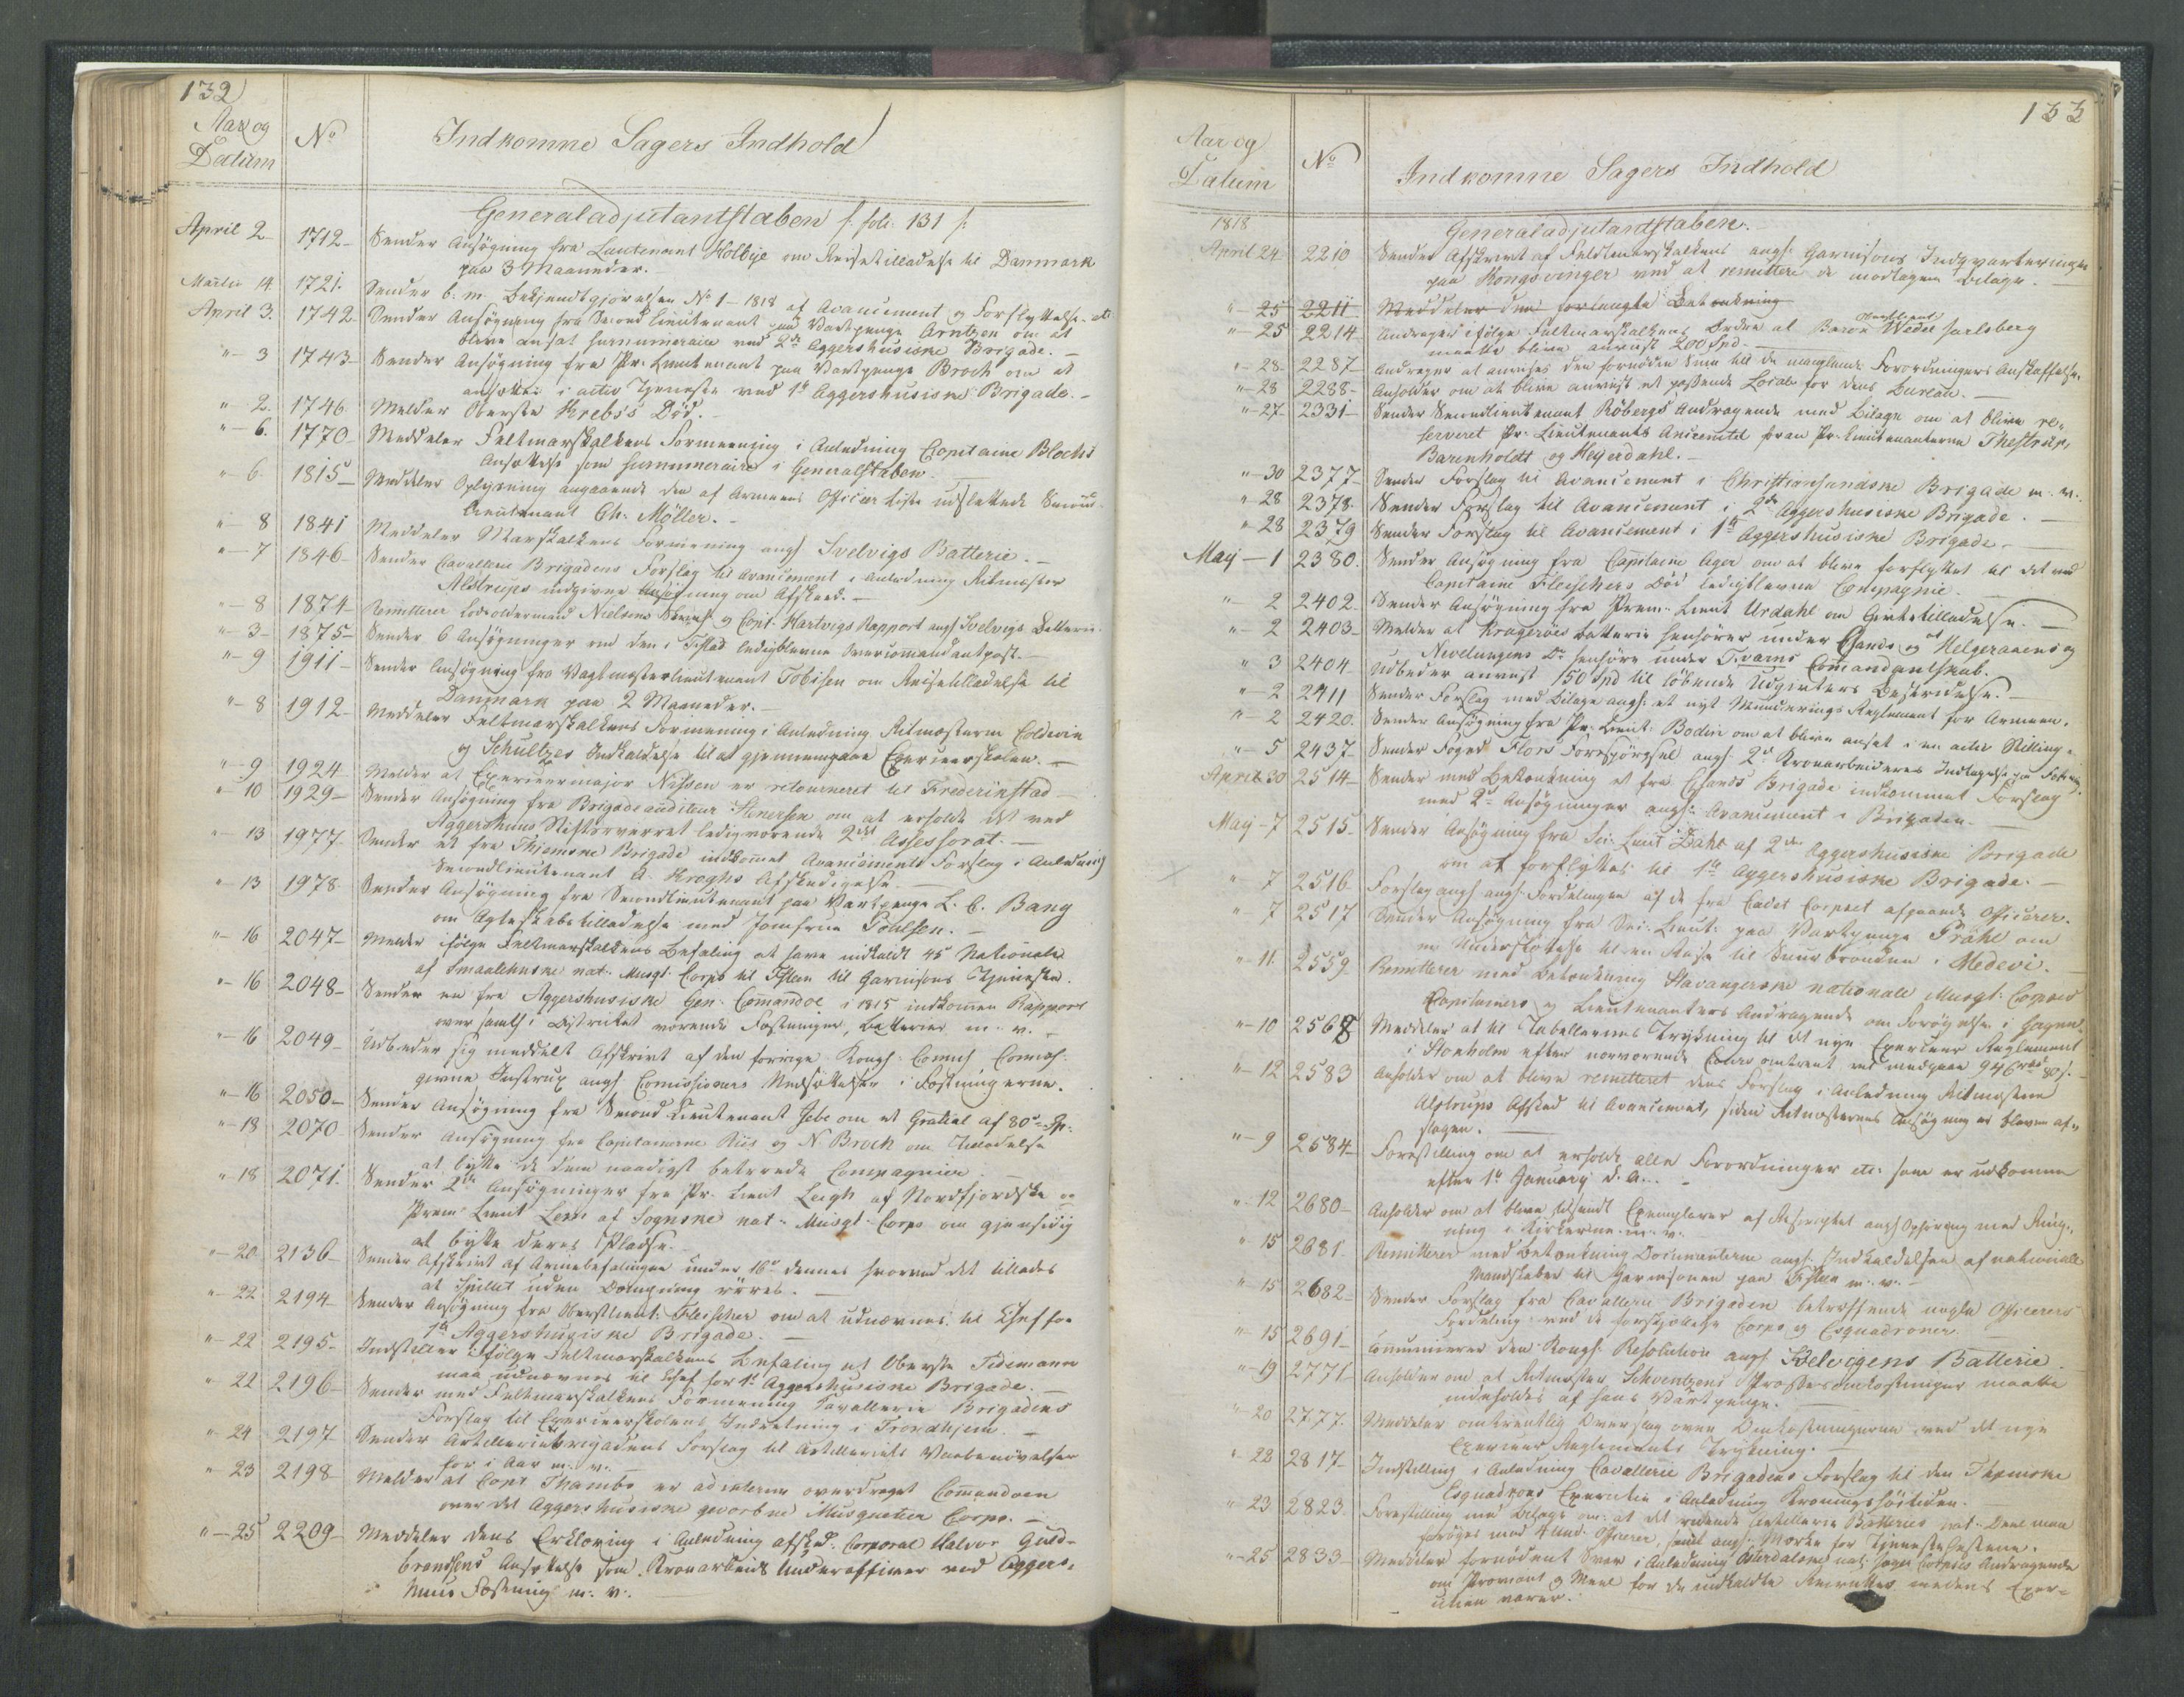 132
Aar og
Datum
No
Indkomne Sagers Indhold
Generaladjutantstaben f. fol. 131 f.
April 2 1712 Sender Ansøgning fra Lieutenant Holbye om Reisetilladelse til Danmark
paa 3 Maaneder.
Martii 14. 1721. Sender b. m. Bekjendtgjørelsen No 1 - 1818 af Avancement og Forflyttelse
April 3. 1742 Sender Ansøgning fra Second Lieutenant paa Vartpenge Arntzen om at
blive ansat surnumeraire ved 2de Aggershusiske Brigade.
" 3 1743 Sender Ansøgning fra Pr. Lieutenant paa Vartpenge Broch om at
ansættes i activ Tjeneste ved 1te Aggershusiske Brigade.
" 2. 1746 Melder Oberste Krebs's Død.
" 6. 1770 Meddeler Feltmarskalkens Formeening i Anledning Capitaine Blochs
Ansættelse som surnumeraire i Generalstaben.
" 6 1815 Meddeler Oplysning angaaende den af Armeens Officier Liste udslettede Second
Lieutenant Ch. Möller.
" 8 1841 Meddeler Marskalkens Formening angl. Svelvigs Batterie.
" 7 1846 Sender Cavallerie Brigadens Forslag til Avancement i Anledning Ritmester
Alstrups indgivne Ansøgning om Afskeed.
" 8 1874 Remitterer Lodsoldermand Nielsens og Capt. Hartvigs Rapport angl. Svelvigs Batterie
" 3 1875 Sender 6 Ansøgninger om den i Fstad ledigblevne Overcommandantpost.
" 9 1911 Sender Ansøgning fra Vagtmesterlieutenant Tobisen om Reisetilladelse til
Danmark paa 2 Maaneder.
" 8 1912 Meddeler Feltmarskalkens Formening i Anledning Ritmesterne Coldevin
og Schultzes Indkaldelse til at gjennemgaae Exerceerskolen.
" 9 1924 Melder at Exerceermajor Nissen er retourneret til Frederikstad
" 10 1929 Sender Ansøgning fra Brigadeauditeur Stenersen om at erholde det ved
Aggershuus Stiftsoverret ledigværende 2det Assessorat.
" 13 1977 Sender et fra Thiemske Brigade indkommet Avancements Forslag i Anledning
Secondlieutenant A. Kroghs Afskedigelse.
" 13 1978 Sender Ansøgning fra Secondlieutenant paa Vartpenge L. C. Bang
om Ægteskabstilladelse med Jomfrue Pohlsen.
" 16 2047 Melder ifølge Feltmarskalkens Befaling at have indkaldt 45 Nationale
af Smaalehnske nat. Musqt. Corps til Fsteen til Garnisons Tjeneste.
" 16 2048 Sender en fra Aggershusiske Gen. Commandoe i 1815 indkommen Rapport
over samtl. i Districtet værende Fæstninger, Batterier m. v.
" 16 2049 Udbeder sig meddeelt Afskrivt af den forrige Kongl.
givne Instrux angl. Comissioners Nedsættelse i Fæstningerne.
" 16 2050 Sender Ansøgning fra Second Lieutenant Jebe om et Gratial af 80 Sp.
" 18 2070 Sender Ansøgning fra Capitainerne Riis og N Broch om Tilladelse
at bytte de dem naadigst betroede Compagnier.
" 18 2071. Sender 2de Ansøgninger fra Pr. Lieut Leigh af Nordfjordske og
Prem Lieut Lem af Sognske nat. Musqt. Corps om gjensidig
at bytte deres Pladse.
" 20 2136 Sender Afskrivt af Armeebefalingen under 16de dennes hvorved det tillades
at Spillet uden Dæmpning røres.
" 22 2194 Sender Ansøgning fra Oberstlieut: Fleischer om at udnævnes til Chef for
1te Aggershusiske Brigade.
" 22 2195 Indstiller ifølge Feltmarskalkens Befaling at Oberste Tidemann
maa udnævnes til Chef for 1te Aggershusiske Brigade.
" 22 2196 Sender med Feltmarskalkens Formening Cavallerie Brigadens
Forslag til Exerceerskolens Indretning i Trondhjem.
" 24 2197 Sender Artilleriebrigadens Forslag til Artilleriets Vaabenøvelser
for i Aar m. v.
" 23 2198 Melder at Capt Thambs er ad interim overdraget Commandoen
over det Aggershusiske gevorbne Musqueteer Corps.
" 25 2209 Meddeler dens Erklæring i Anledning afsked. Corporal Halvor Gud-
brandsens Ansættelse som Kronarbeids Underofficeer ved Aggers-
huus Fæstning m. v.
133
Aar og
Datum
No
Indkomne Sagers Indhold
1818
Generaladjutantstaben.
April 24 2210 Sender Afskrivt af Feldtmarskalkens angl. Garnisons Indqvarteringen
paa Kongsvinger ved at remittere de modtagne Bilage.
" 25 2211 Meddeler den forlangte Betænkning
" 25 2214 Andrager ifølge Feltmarskalkens Ordre at Baron Oberstlieut Wedel Jarlsberg
maatte blive anviist 200 Spd.
" 28 2287 Andrager at anvises den fornødne Sum til de manglende Forordningers Anskaffelse.
" 28 2288 Anholder om at blive anviist et passende Locale for dens Bureau.
" 27 2331 Sender Secondlieutenant Röbergs Andragende med Bilage om at blive re-
serveret Pr. Lieutenants Ancienitet foran Pr. Lieutenanterne Thestrup,
Barenholdt og Heyerdahl.
" 30 2377 Sender Forslag til Avancement i Christiansandske Brigade m. v.
" 28 2378 Sender Forslag til Avancement i 2de Aggershusiske Brigade.
" 28 2379 Sender Forslag til Avancement i 1te Aggershusiske Brigade
Maij 1 2380. Sender Ansøgning fra Capitaine Ager om at blive forflyttet til det ved
Capitaine Fleischers Død ledigblevne Compagnie.
" 2 2402 Sender Ansøgning fra Prem. Lieut Urdahl om Giftetilladelse.
" 2 2403 Melder at Kragerøes Batterie henhører under Csands og at Helgeraaens og
Nevelungens Do henhøre under Fværns Comandantskab.
" 3 2404 Udbeder anviist 150 Spd til løbende Udgivters Bestridelse.
" 2 2411 Sender Forslag med Bilage angl. et nyt Munderings Reglement for Armeen.
" 2 2420. Sender Ansøgning fra Pr. Lieut. Bodin om at blive ansat i en activ Stilling
" 5 2437 Sender Foged Flors Forespørgsel angl. 2de Kronarbeideres Indtagelse paa
April 30 2514 Sender med Betænkning et fra Csands Brigade indkommet Forslag
med 2de Ansøgninger angl. Avancement i Brigaden.
Maij 7 2515 Sender Ansøgning fra Sec. Lieut Dahl af 2den Aggershusiske Brigade
om at forflyttes til 1te Aggershusiske Brigade.
" 7 2516 Forslag angl. angl. Fordelingen af de fra Cadet Corpset afgaaende Officerer.
" 7 2517 Sender Ansøgning fra Sec. Lieut: paa Vartpenge Pröhl om
en Understøttelse til en Reise til Suurbrønden i Medevi.
" 11. 2559 Remitterer med Betænkning Stavangerske nationale Musqt. Corpses
Capitainers og Lieutenanters Andragende om Forøgelse i Gagen.
" 10 2568 Meddeler at til Tabellernes Trykning til det nye Exerceer Reglement
i Stokholm efter nærværende Cours omtrent vil medgaae 946 rbd 80 s.
" 12 2583 Anholder om at blive remitteret dens Forslag i Anledning Ritmester
Alstrups Afsked til Avancement, siden Ritmesterens Ansøgning er bleven af-
slagen.
" 9 2584 Forestilling om at erholde alle Forordninger etc. som er udkomne
efter 1te Januarij d. A.
" 12 2680 Anholder om at blive tilsendt Exemplarer af Rescriptet angl. Ophøring med Ring-
ning i Kirkerne m. v.
" 15 2681 Remitterer med Betænkning Documenterne angl. Indkaldelsen af nationale
Mandskaber til Garnisonen paa Fsteen m. v.
" 15 2682 Sender Forslag fra Cavallerie Brigaden betræffende nogle Officerers
Fordeling ved de forskjellige Corps og Esquadroner.
" 15 2691 Comunicerer den Kongl. Resolution angl. Svelvigens Batterie.
" 19 2771 Anholder om at Ritmester Schwentzens Prosesomkostninger maatte
indeholdes af hans Vartpenge.
" 20 2777. Meddeler omtrentlig Overslag over Omkostningerne ved det nye
Exerceer Reglements Trykning.
" 22 2817 Indstilling i Anledning Cavallerie Brigadens Forslag til den Thiemske
Esquadrons Exercitie i Anledning Kroningshøitiden.
" 23 2823. Forestilling med Bilage om: at det ridende Artillerie Batteries nat. Deel maa
forøges med 4 Und. Officerer, samt angl. Mærke for Tjenestehestene.
" 25 2833 Meddeler fornødent Svar i Anledning Østerdalske nat. Jæger Corpses Andragende
om Proviant og Meel for de indkaldte Recrutter medens Exer-
citien varer.